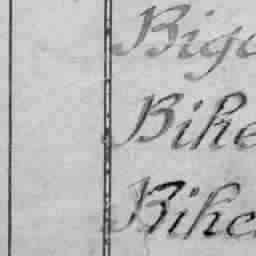 Bige
Bihe
Bihe